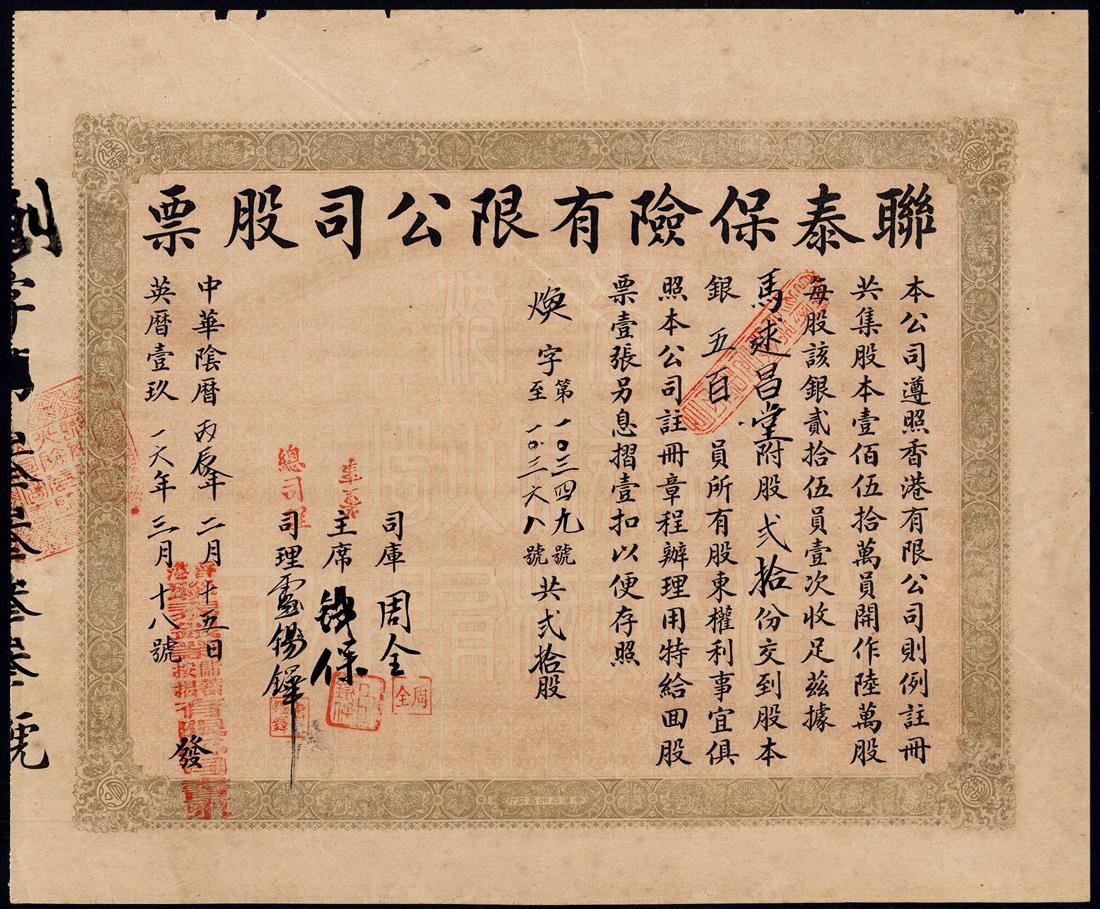 聯泰保險有限公司股票
本公司遵照香港有限公司則例註冊
共集股本壹佰伍拾萬員開作陸萬股
每股該銀貳拾伍員壹次收足茲據
馬逑昌堂附股弍拾份交到股本
銀五百員所有股東權利事宜俱
照本公司註冊章程辦理用特給回股
票壹張另息摺壹扣以便存照
煥字第一〇三四九號至一〇三六八號共弍拾股
司庫周全
主席
總司理
司理
中華陰曆丙辰年二月十五日
英曆壹玖一六年三月十八號
發
周全